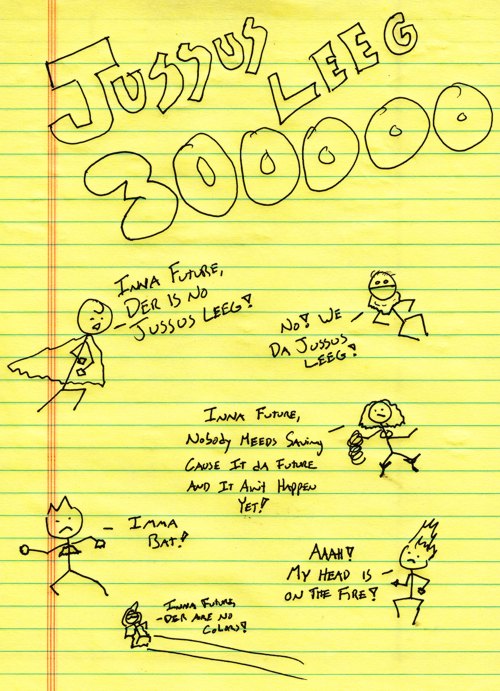 JUSSUS
LEEG
300000
INNA FUTURE,
DER IS NO
JUSSUS LEEG!
NO! WE
DA JUSSUS
LEEG!
INNA FUTURE,
NOBODY NEEDS SAVING
CAUSE IT DA FUTURE
AND IT AIN'T HAPPEN
YET!
IMMA
BAT!
AAAH!
MY HEAD IS
ON THE FIRE!
INNA FUTURE,
DER ARE NO
COLORS!